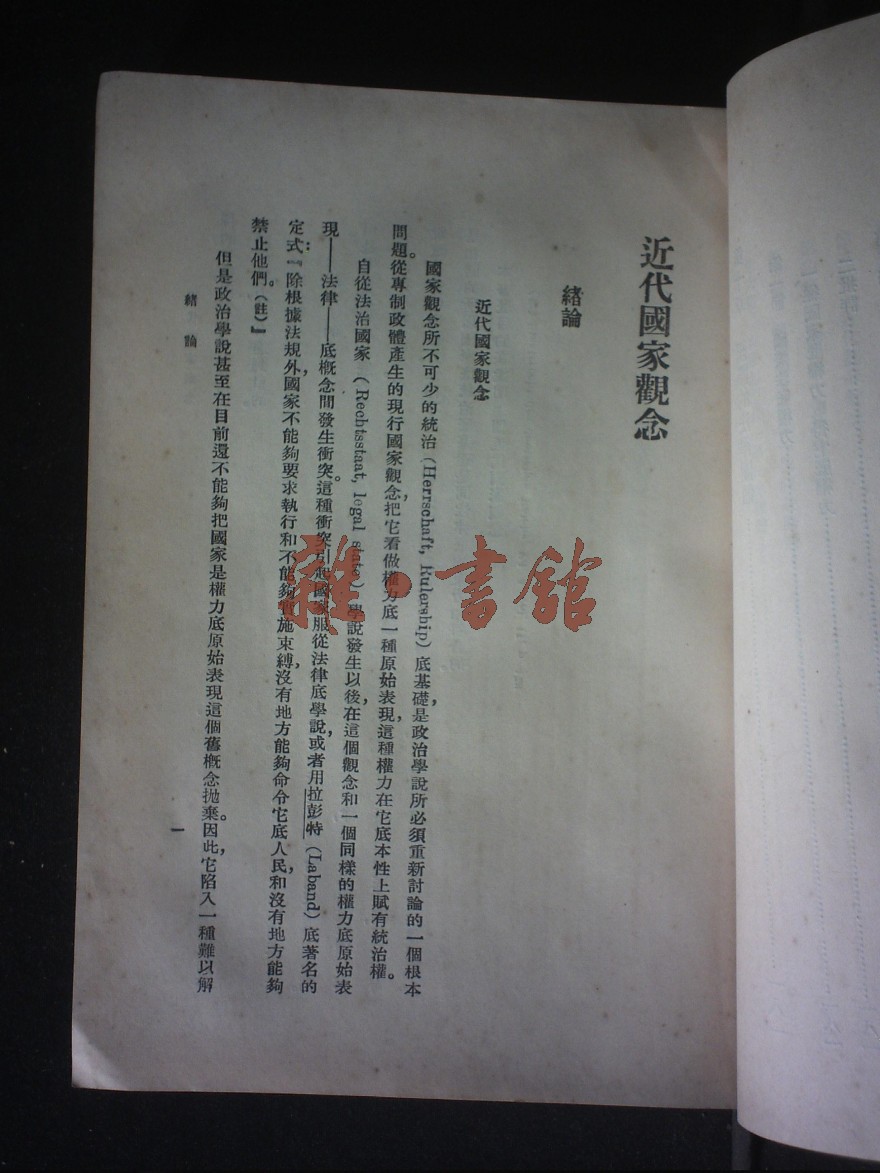 近代國家觀念
緒論
近代國家觀念
國家觀念所不可少的統治(Herrschaft, Rulership)底基礎,是政治學說所必須重新討論的一個根本
問題。從專制政體產生的現行國家觀念,把它看做權力底一種原始表現,這種權力在它底本性上賦有統治權。
自從法治國家(Rechtsstaat, legal state)學說發生以後,在這個觀念和一個同樣的權力底原始表
現——法律——底概念間發生衝突。這種衝突引起國家服從法律底學說,或者用拉彭特(Laband)底著名的
定式:『除根據法規外,國家不能夠要求執行和不能夠實施束縛,沒有地方能夠命令它底人民,和沒有地方能夠
禁止他們。(註)』
但是政治學說甚至在目前還不能夠把國家是權力底原始表現這個舊概念拋棄。因此,它陷入一種難以解
緒論
一
雜·書館